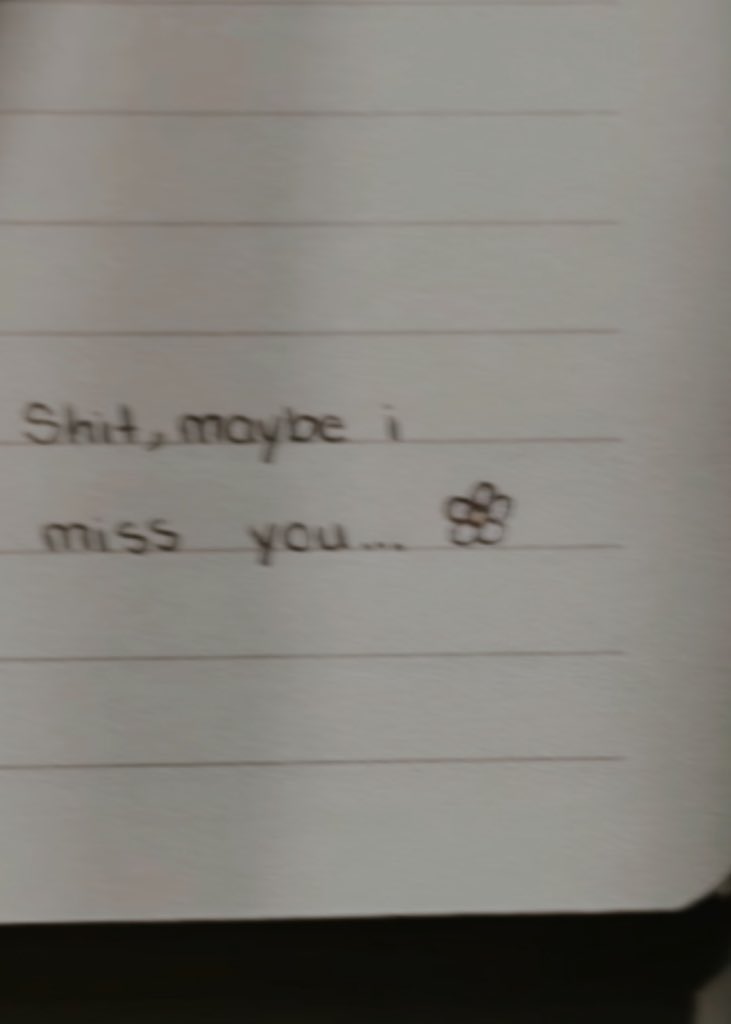 Shit, maybe i
miss you...